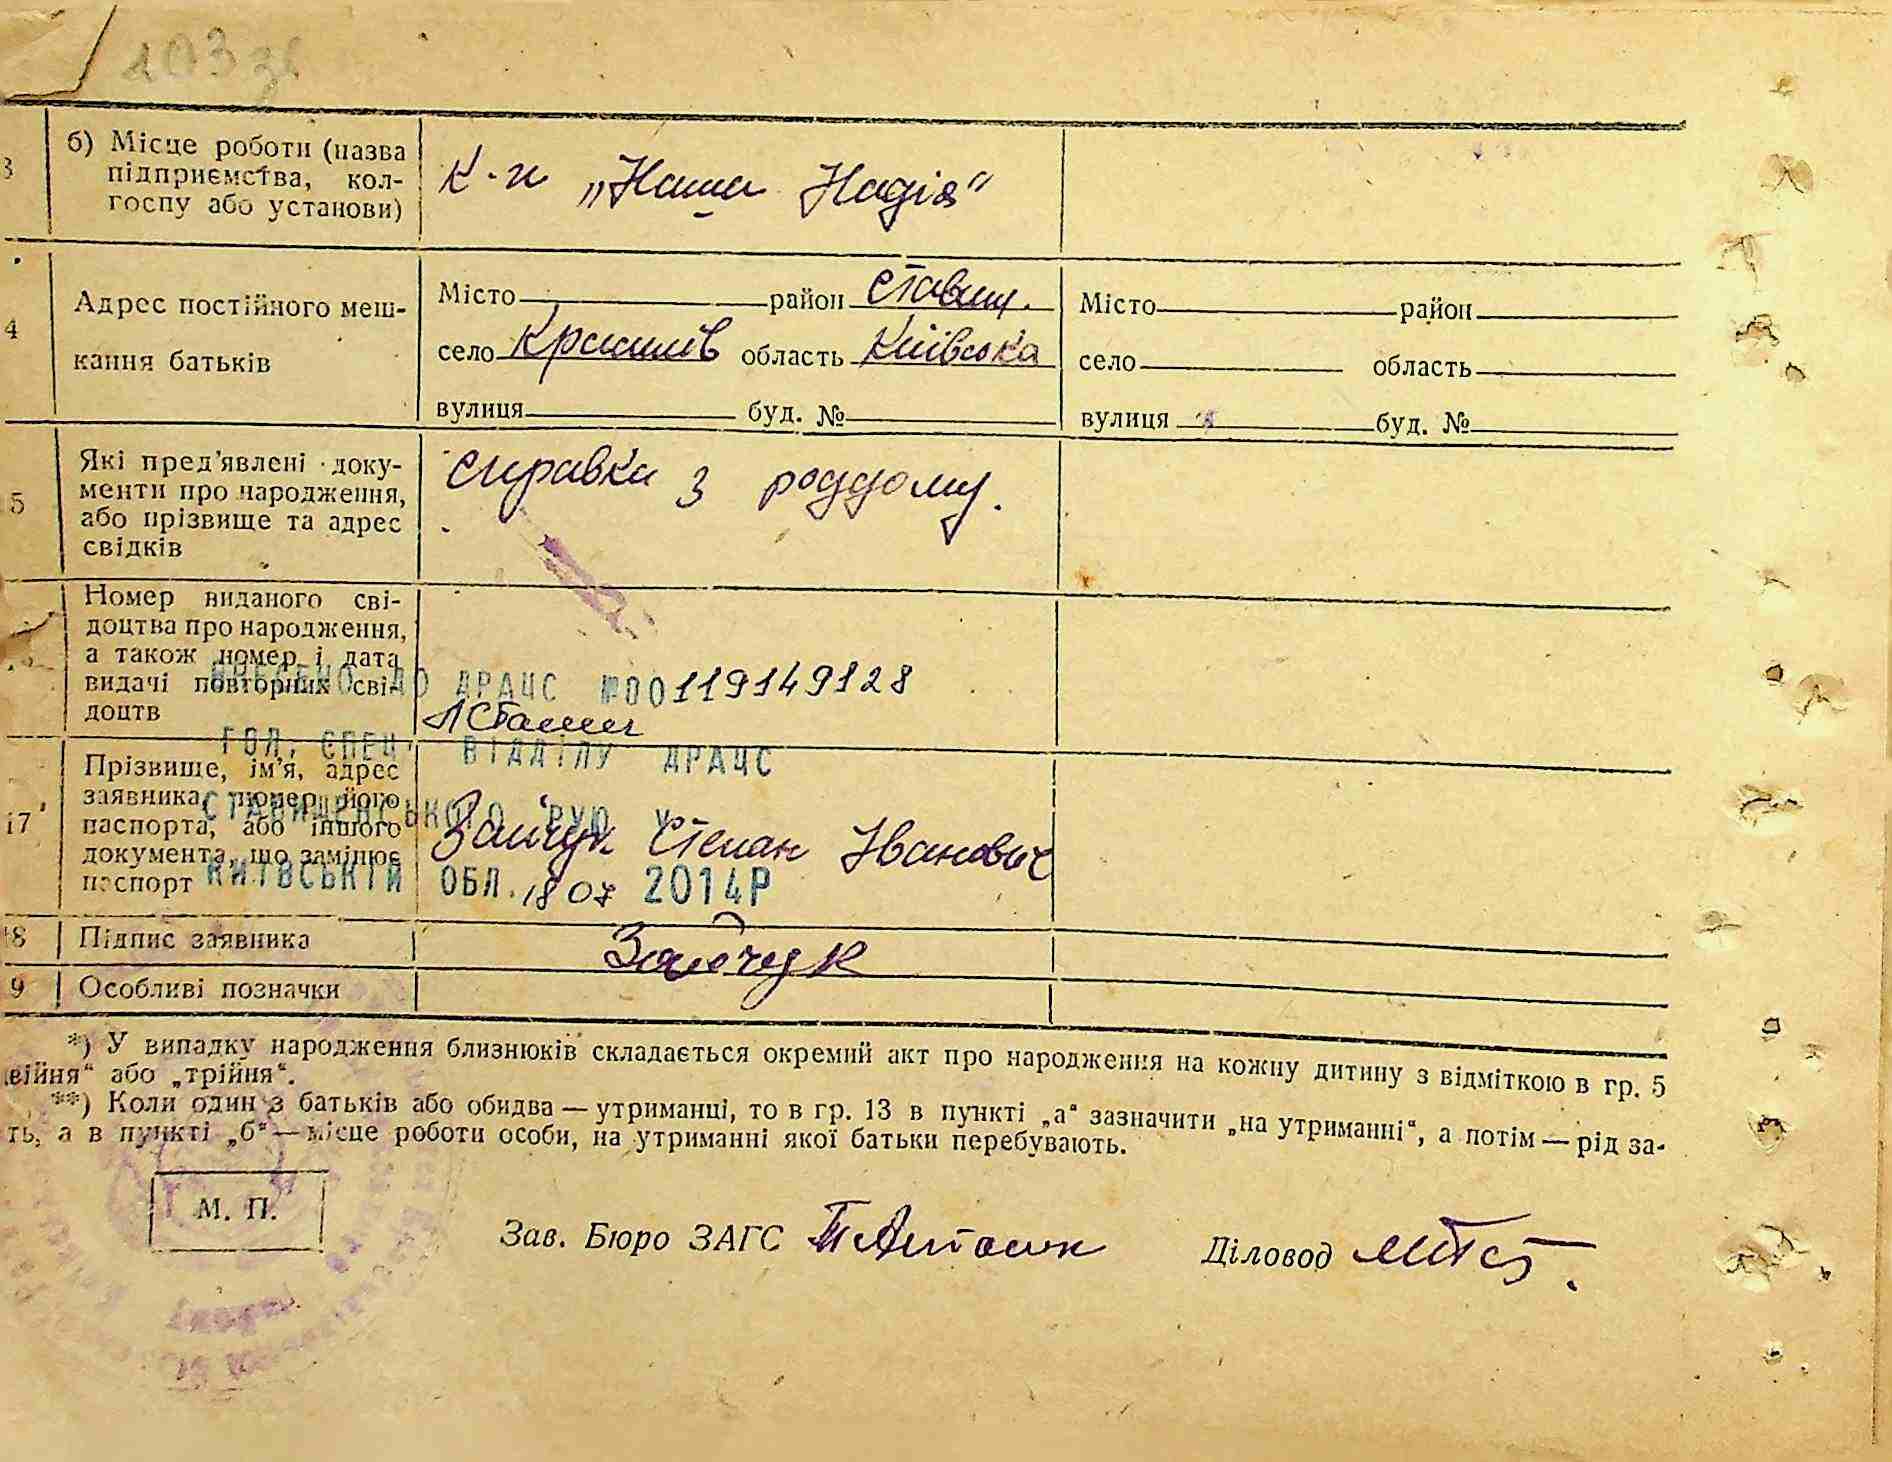 103
3 б) Місце роботи (назва
підприємства, кол-
госпу або установи)
к-п „Наша Надія“
4 Адрес постійного меш-
кання батьків
Місто район Ставищ.
село область Київська
вулиця буд. №
Місто район
село область
вулиця буд. №
5 Які пред’явлені доку-
менти про народження,
або прізвище та адрес
свідків
справка з роддому.
Номер виданого сві-
доцтва про народження,
а також номер і дата
видачі повторних сві-
доцтв
ВНЕСЕНО ДО ДРАЦС №00119149128
ГОЛ. СПЕЦ. ВІДДІЛУ ДРАЦС
СТАВИЩЕНСЬКОГО РУЮ У
КИЇВСЬКІЙ ОБЛ. 18 07 2014Р
17 Прізвище, ім’я, адрес
заявника, номер його
паспорта, або іншого
документа, що замінює
паспорт
Зайчук Степан Іванович
18 Підпис заявника Зайчук
9 Особливі позначки
*) У випадку народження близнюків складається окремий акт про народження на кожну дитину з відміткою в гр. 5
війня“ або „трійня“.
**) Коли один з батьків або обидва — утриманці, то в гр. 13 в пункті „а“ зазначити „на утриманні“, а потім — рід за-
ть, а в пункті „б“ — місце роботи особи, на утриманні якої батьки перебувають.
М. П.
Зав. Бюро ЗАГС Діловод